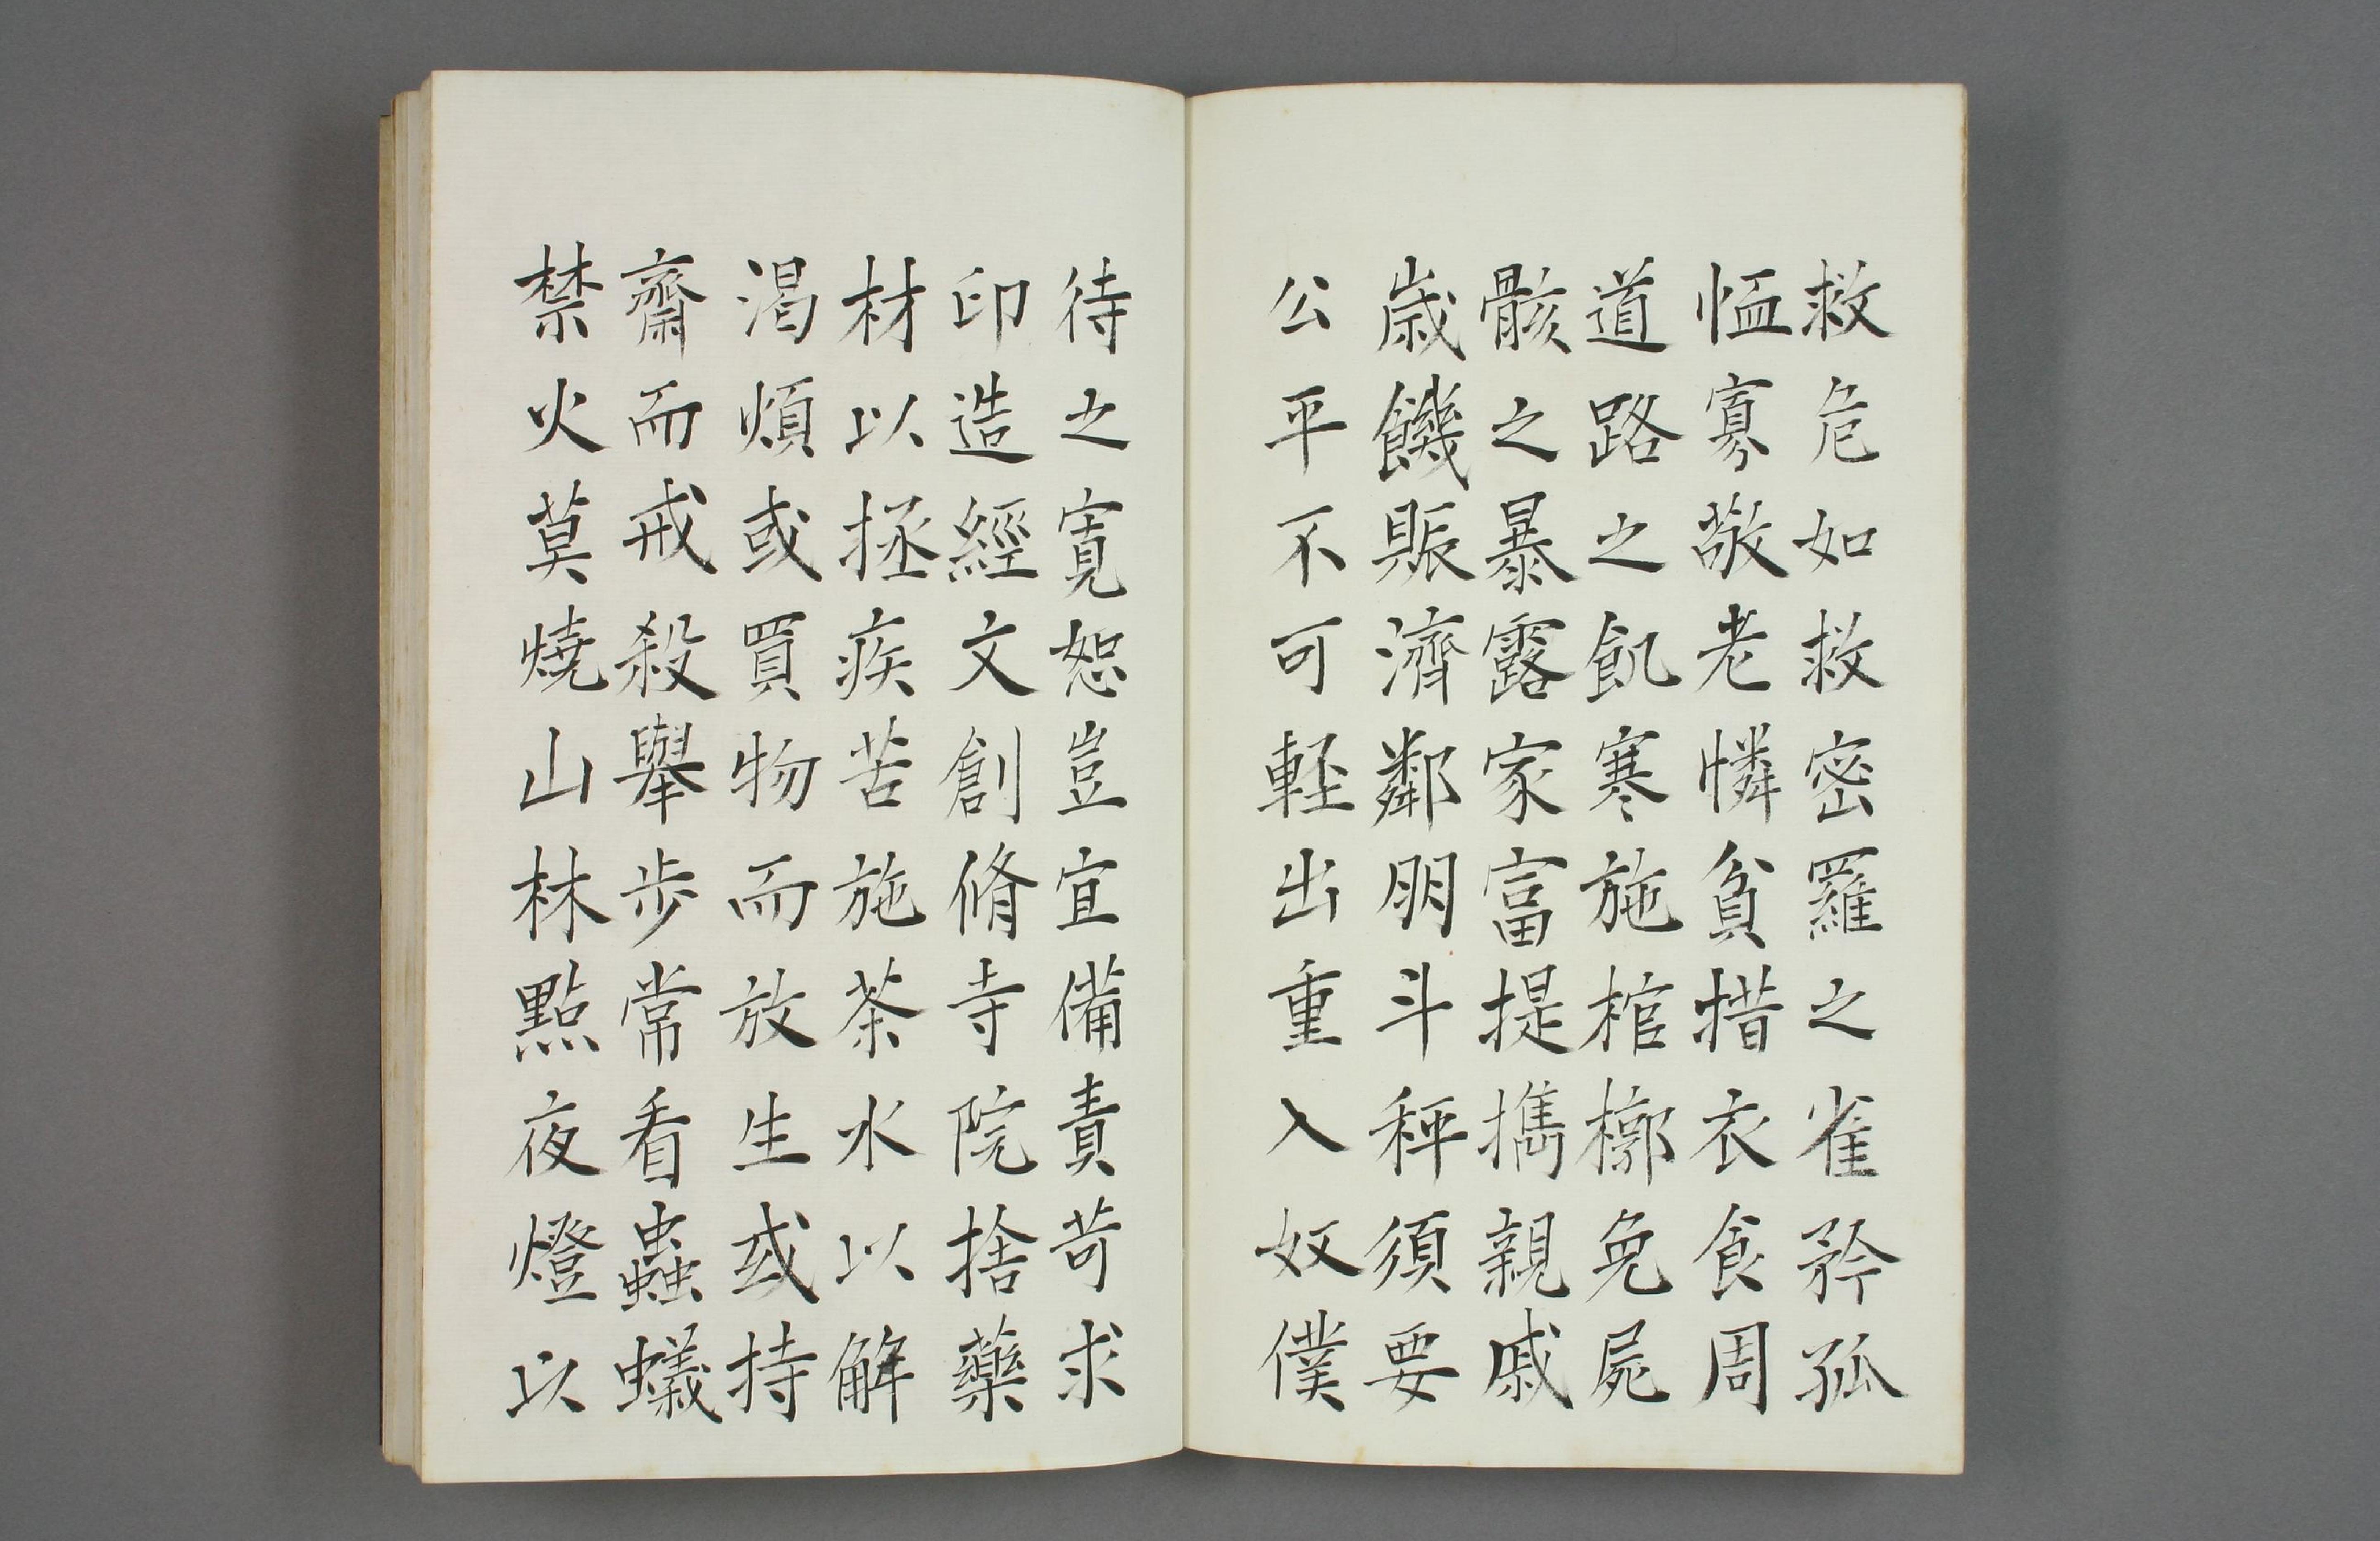 救危如救密羅之雀矜孤
恤寡敬老憐貧措衣食周
道路之飢寒施棺槨免屍
骸之暴露家富提攜親戚
歳饑賑濟鄰朋斗秤須要
公平不可軽出重入奴僕
待之寛恕豈宜備責苛求
印造經文創脩寺院捨藥
材以拯疾苦施茶水以解
渇煩或買物而放生或持
齋而戒殺舉步常看蟲蟻
禁火莫燒山林點夜燈以